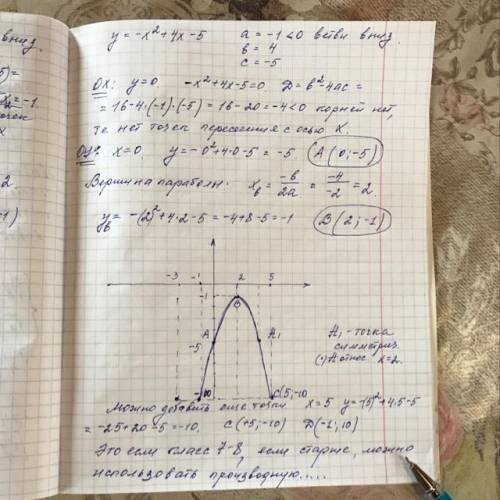 y = -x²+4x-5   a = -1<0 ветви вниз.
вниз.   b = 4
c = -5
OX: y=0. -x²+4x-5=0 D=b²-4ac =
= 16-4·(-1)·(-5) = 16-20=-4<0 корней нет,
т.е нет точек пересечения с осью X.
OY: x=0. y=-0²+4·0-5 = -5. A(0;-5)
Вершина параболы: xв = -b/2a = -4/-2 = 2.
yв = -(2)²+4·2-5 = -4+8-5=-1 B(2;-1)
-3 -1 2 5
-1
B
A A₁
-5
A₁ - точка
симметриз.
(·)A относ x=2.
-10 C(5;-10
Можно добавить еще точки x=5 y=-(5)²+4·5-5
= -25+20-5=-10. C(+5;-10) D(-1;10)
Это если класс 7-8, если старше, можно
использовать производную.....